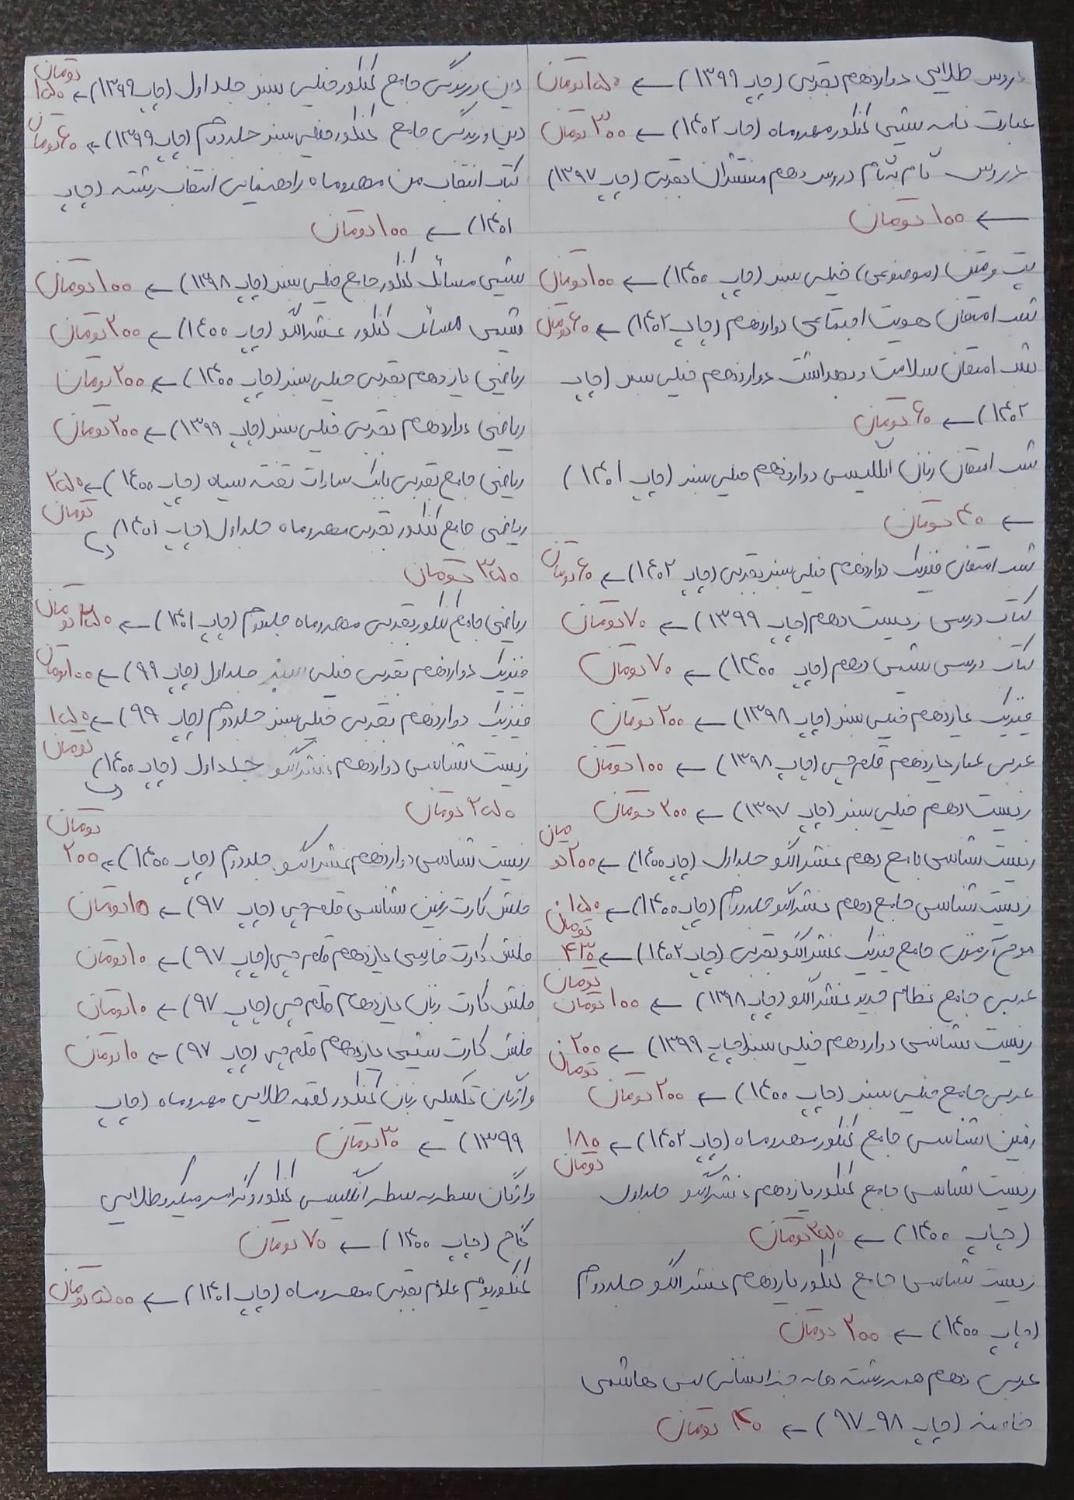 دروس طلایی دوازدهم تجربی (چاپ ۱۳۹۹) ← ۱۵۰ تومان
عبارت نامه شیمی کنکور مهروماه (چاپ ۱۴۰۲) ← ۳۰۰ تومان
دروس گام به گام دروس دهم منتشران تجربی (چاپ ۱۳۹۷)
← ۱۰۰ تومان
تست و متن (موضوعی) خیلی سبز (چاپ ۱۴۰۰) ← ۱۰۰ تومان
شب امتحان هویت اجتماعی دوازدهم (چاپ ۱۴۰۲) ← ۶۰ تومان
شب امتحان سلامت و بهداشت دوازدهم خیلی سبز (چاپ
۱۴۰۲) ← ۶۰ تومان
شب امتحان زبان انگلیسی دوازدهم خیلی سبز (چاپ ۱۴۰۱)
← ۴۰ تومان
شب امتحان فیزیک دوازدهم خیلی سبز تجربی (چاپ ۱۴۰۲) ← ۶۰ تومان
کتاب درسی زیست دهم (چاپ ۱۳۹۹) ← ۷۰ تومان
کتاب درسی شیمی دهم (چاپ ۱۴۰۰) ← ۷۰ تومان
فیزیک یازدهم خیلی سبز (چاپ ۱۳۹۸) ← ۲۰۰ تومان
عربی عمار یازدهم قلم چی (چاپ ۱۳۹۸) ← ۱۰۰ تومان
زیست دهم خیلی سبز (چاپ ۱۳۹۷) ← ۲۰۰ تومان
زیست شناسی جامع دهم نشر الگو جلد اول (چاپ ۱۴۰۰) ← ۲۰۰ تومان
زیست شناسی جامع دهم نشر الگو جلد دوم (چاپ ۱۴۰۰) ← ۱۵۰ تومان
موج آزمون جامع فیزیک نشر الگو تجربی (چاپ ۱۴۰۲) ← ۴۳۰ تومان
عربی جامع نظام جدید نشر الگو (چاپ ۱۳۹۸) ← ۱۰۰ تومان
زیست شناسی دوازدهم خیلی سبز (چاپ ۱۳۹۹) ← ۲۰۰ تومان
عربی جامع خیلی سبز (چاپ ۱۴۰۰) ← ۲۰۰ تومان
زمین شناسی جامع کنکور مهروماه (چاپ ۱۴۰۲) ← ۱۸۰ تومان
زیست شناسی جامع کنکور یازدهم نشر الگو جلد اول
(چاپ ۱۴۰۰) ← ۳۵۰ تومان
زیست شناسی جامع کنکور یازدهم نشر الگو جلد دوم
(چاپ ۱۴۰۰) ← ۲۰۰ تومان
عربی دهم همه رشته ها به جز انسانی بنی هاشمی
خامنه (چاپ ۹۸-۹۷) ← ۴۰ تومان
دین و زندگی جامع کنکور خیلی سبز جلد اول (چاپ ۱۳۹۹) ← ۱۵۰ تومان
دین و زندگی جامع کنکور خیلی سبز جلد دوم (چاپ ۱۳۹۹) ← ۶۰ تومان
کتاب انتخاب من مهروماه راهنمایی انتخاب رشته (چاپ
۱۴۰۱) ← ۱۰۰ تومان
شیمی مسائل کنکور جامع خیلی سبز (چاپ ۱۳۹۸) ← ۱۰۰ تومان
شیمی مسائل کنکور نشر الگو (چاپ ۱۴۰۰) ← ۲۰۰ تومان
ریاضی یازدهم تجربی خیلی سبز (چاپ ۱۴۰۰) ← ۲۰۰ تومان
ریاضی دوازدهم تجربی خیلی سبز (چاپ ۱۳۹۹) ← ۲۰۰ تومان
ریاضی جامع تجربی بانک سارات تخته سیاه (چاپ ۱۴۰۰) ← ۲۵۰ تومان
ریاضی جامع کنکور تجربی مهروماه جلد اول (چاپ ۱۴۰۱)
۳۵۰ تومان
ریاضی جامع کنکور تجربی مهروماه جلد دوم (چاپ ۱۴۰۱) ← ۳۵۰ تومان
فیزیک دوازدهم تجربی خیلی سبز جلد اول (چاپ ۹۹) ← ۱۰۰ تومان
فیزیک دوازدهم تجربی خیلی سبز جلد دوم (چاپ ۹۹) ← ۱۵۰ تومان
زیست شناسی دوازدهم نشر الگو جلد اول (چاپ ۱۴۰۰)
۲۵۰ تومان
زیست شناسی دوازدهم نشر الگو جلد دوم (چاپ ۱۴۰۰) ← ۲۰۰ تومان
فلش کارت زمین شناسی قلم چی (چاپ ۹۷) ← ۱۵ تومان
فلش کارت فارسی یازدهم قلم چی (چاپ ۹۷) ← ۱۰ تومان
فلش کارت زبان یازدهم قلم چی (چاپ ۹۷) ← ۱۰ تومان
فلش کارت شیمی یازدهم قلم چی (چاپ ۹۷) ← ۱۰ تومان
واژگان تکمیلی زبان کنکور لقمه طلایی مهروماه (چاپ
۱۳۹۹) ← ۳۰ تومان
واژگان سطر به سطر انگلیسی کنکور و گرامر میکرو طلایی
گاج (چاپ ۱۴۰۰) ← ۷۰ تومان
کنکوریوم علوم تجربی مهروماه (چاپ ۱۴۰۱) ← ۵۰۰ تومان